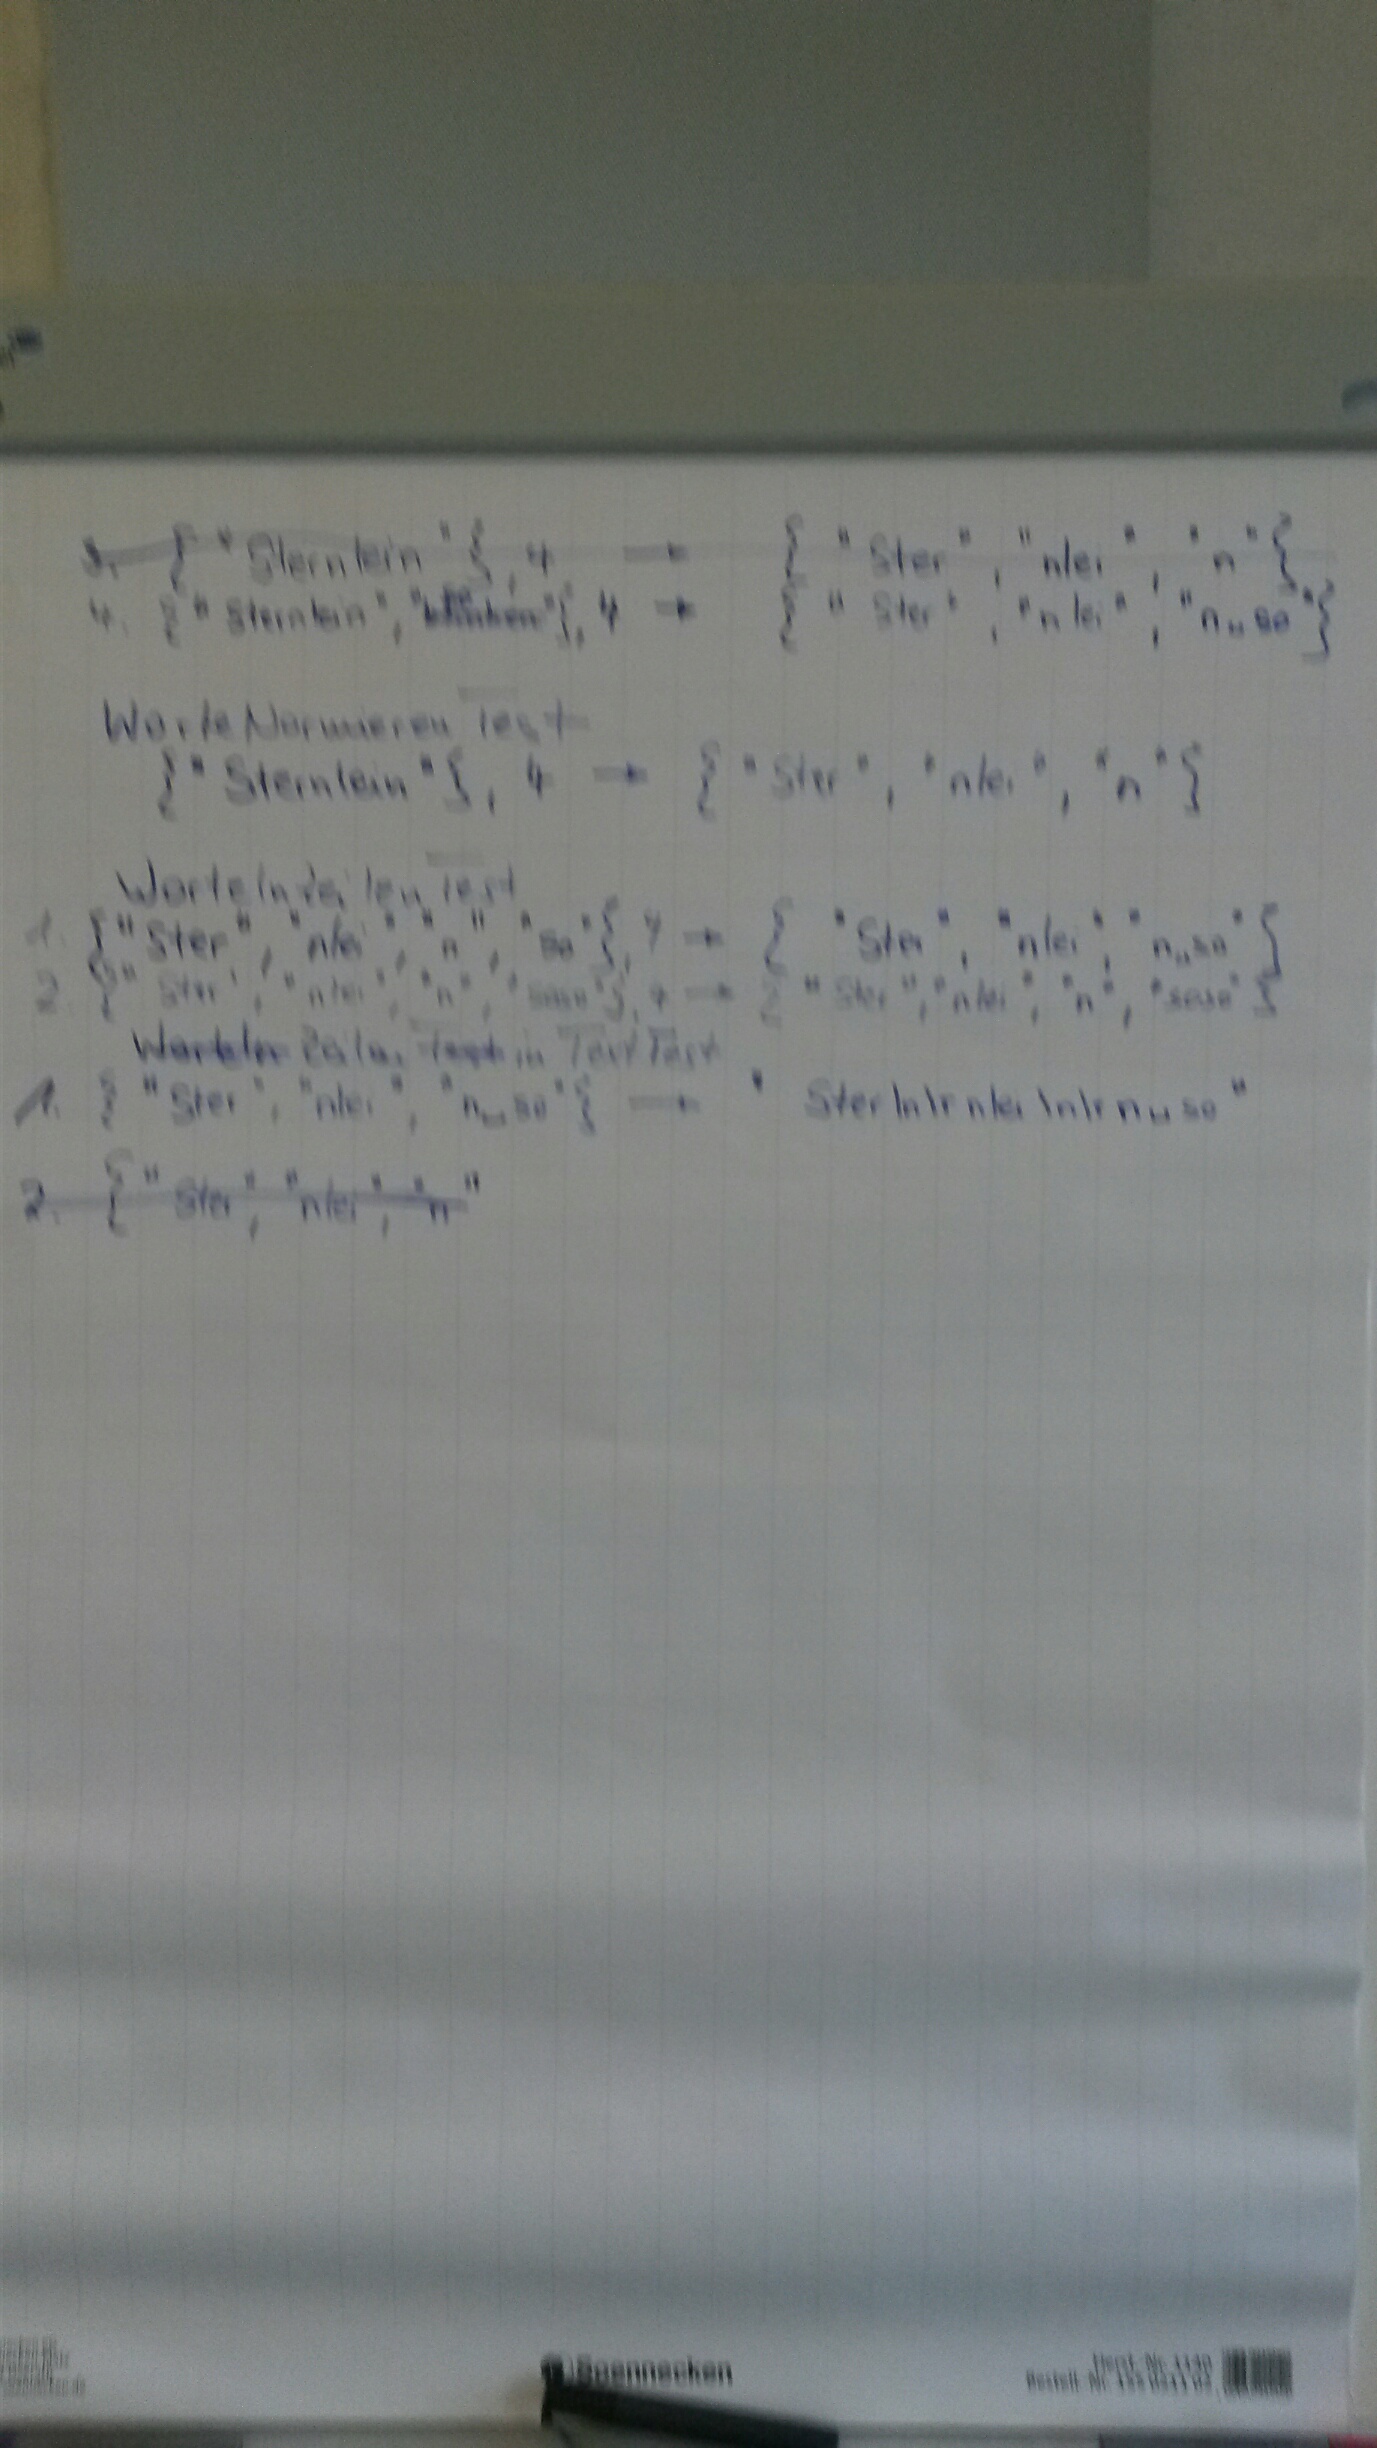 3. {"Sternlein"}, 4 → {"Ster", "nlei", "n"}
4. {"Sternlein", "so"}, 4 → {"Ster", "nlei", "n␣so"}
WorteNormierenTest
{"Sternlein"}, 4 → {"Ster", "nlei", "n"}
WorteInZeilenTest
1. {"Ster", "nlei", "n", "so"}, 4 → {"Ster", "nlei", "n␣so"}
2. {"Ster", "nlei", "n", "soso"}, 4 → {"Ster", "nlei", "n", "soso"}
Zeilen in TextTest
1. {"Ster", "nlei", "n␣so"} → "Ster\n\r nlei \n\r n␣so"
2. {"Ster", "nlei", "n"
Soennecken